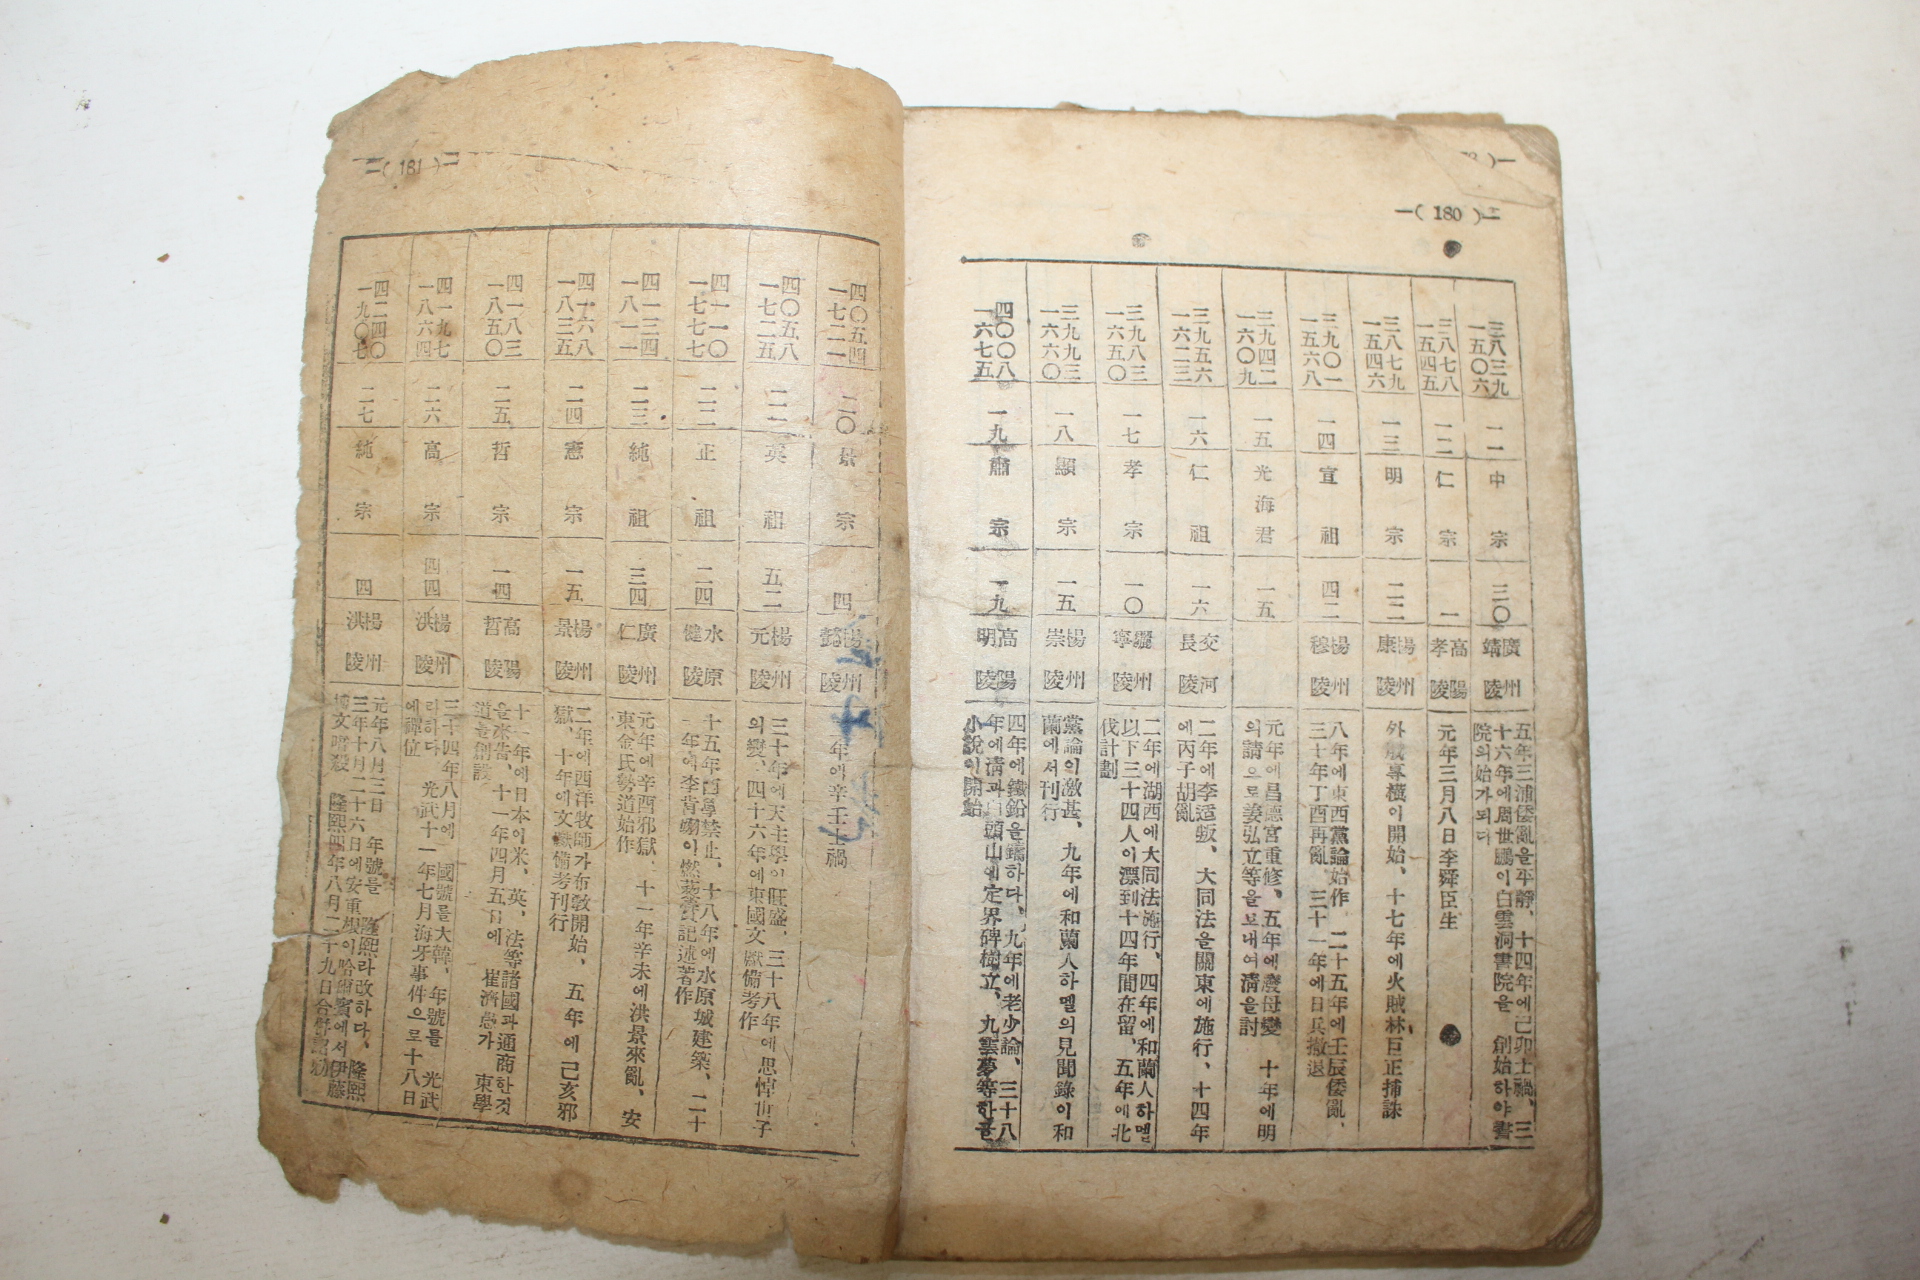 —( 180 )—
三八三九
一五〇六
一一
中宗
三〇
廣州
靖陵
五年三浦倭亂을平靜、十四年에己卯士禍、三
十六年에周世鵬이白雲洞書院을 創始하야書
院의始가되다
三八七八
一五四五
一二
仁宗
一
高陽
孝陵
元年三月八日李舜臣生
三八七九
一五四六
一三
明宗
二二
楊州
康陵
外戚專橫이開始、十七年에火賊林巨正捕誅
三九〇一
一五六八
一四
宣祖
四二
楊州
穆陵
八年에東西黨論始作 二十五年에壬辰倭亂、
三十年丁酉再亂、三十一年에日兵撤退
三九四二
一六〇九
一五
光海君
一五
元年에昌德宮重修、五年에廢母變 十年에明
의請으로姜弘立等을보내여淸을討
三九五六
一六二三
一六
仁祖
一六
交河
長陵
二年에李适叛、大同法을關東에施行、十四年
에丙子胡亂
三九八三
一六五〇
一七
孝宗
一〇
驪州
寧陵
二年에湖西에大同法施行、四年에和蘭人하멜
以下三十四人이漂到十四年間在留、五年에北
伐計劃
三九九三
一六六〇
一八
顯宗
一五
楊州
崇陵
黨論의激甚、九年에和蘭人하멜의見聞錄이和
蘭에서刊行
四〇〇八
一六七五
一九
肅宗
一九
高陽
明陵
四年에鐵鉛을鑄하다、九年에老少論、三十八
年에淸과白頭山에定界碑樹立、九雲夢等한글
小說이開始
—( 181 )—
四〇五四
一七二一
二〇
景宗
四
楊州
懿陵
年에辛壬士禍
四〇五八
一七二五
二一
英祖
五二
楊州
元陵
三十年에天主學이旺盛、三十八年에思悼世子
의變、四十六年에東國文獻備考作
四一一〇
一七七七
二二
正祖
二四
水原
健陵
十五年西學禁止、十八年에水原城建築、二十
年에李肯翊이燃藜記述著作
四一三四
一八一一
二三
純祖
三四
廣州
仁陵
元年에辛酉邪獄、十一年辛未에洪景來亂、安
東金氏勢道始作
四一六八
一八三五
二四
憲宗
一五
楊州
景陵
二年에西洋牧師가布敎開始、五年에己亥邪
獄、十年에文獻備考刊行
四一八三
一八五〇
二五
哲宗
一四
高陽
哲陵
十一年에日本이米、英、法等諸國과通商한것
을來告、十一年四月五日에 崔濟愚가 東學
道를創設
四一九七
一八六四
二六
高宗
四四
楊州
洪陵
三十四年八月에 國號를大韓、年號를 光武
라하다 光武十一年七月海牙事件으로十八日
에禪位
四二四〇
一九〇七
二七
純宗
四
楊州
洪陵
元年八月二日 年號를 隆熙라改하다、隆熙
三年十月二十六日에安重根이哈爾賓에서伊藤
博文暗殺 隆熙四年八月二十九日合併詔勅